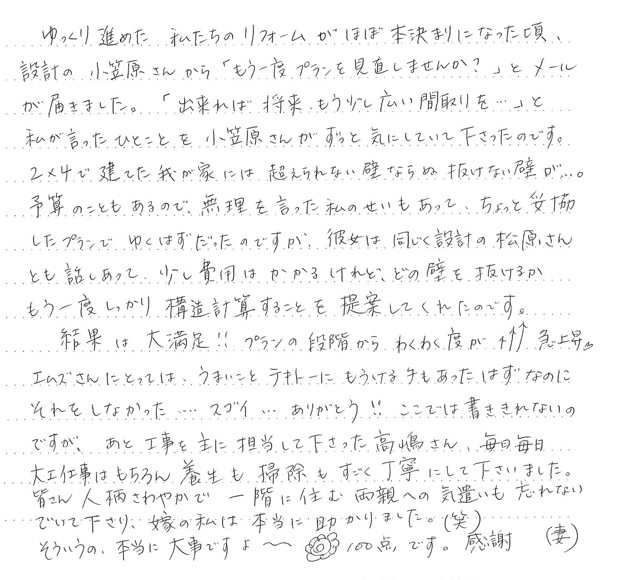 ゆっくり進めた 私たちのリフォームがほぼ本決まりになった頃、
設計の 小笠原さんから「もう一度プランを見直しませんか？」とメール
が届きました。「出来れば将来、もう少し広い間取りを…」と
私が言ったひとことを 小笠原さんがずっと気にしていて下さったのです。
2×4で建てた我が家には 超えられない壁ならぬ 抜けない壁が…。
予算のこともあるので、無理を言った私のせいもあって、ちょっと妥協
したプランで ゆくはずだったのですが、彼女は同じく設計の松原さん
とも話しあって、少し費用はかかるけれど、どの壁を抜けるか
もう一度しっかり 構造計算することを提案してくれたのです。
結果は大満足!! プランの段階から わくわく度が↑↑↑ 急上昇
エムズさんにとっては、うまいこと テキトーにもうける手もあったはずなのに
それをしなかった …… スゴイ … ありがとう!! ここでは書ききれないの
ですが、あと工事を主に担当して下さった高嶋さん、毎日毎日
大工仕事はもちろん 養生も掃除もすごく丁寧にして下さいました。
皆さん人柄さわやかで 一階に住む両親への気遣いも忘れない
でいて下さり、嫁の私は本当に助かりました。(笑)
そういうの、本当に大事ですよ〜 100点です。感謝 (妻)